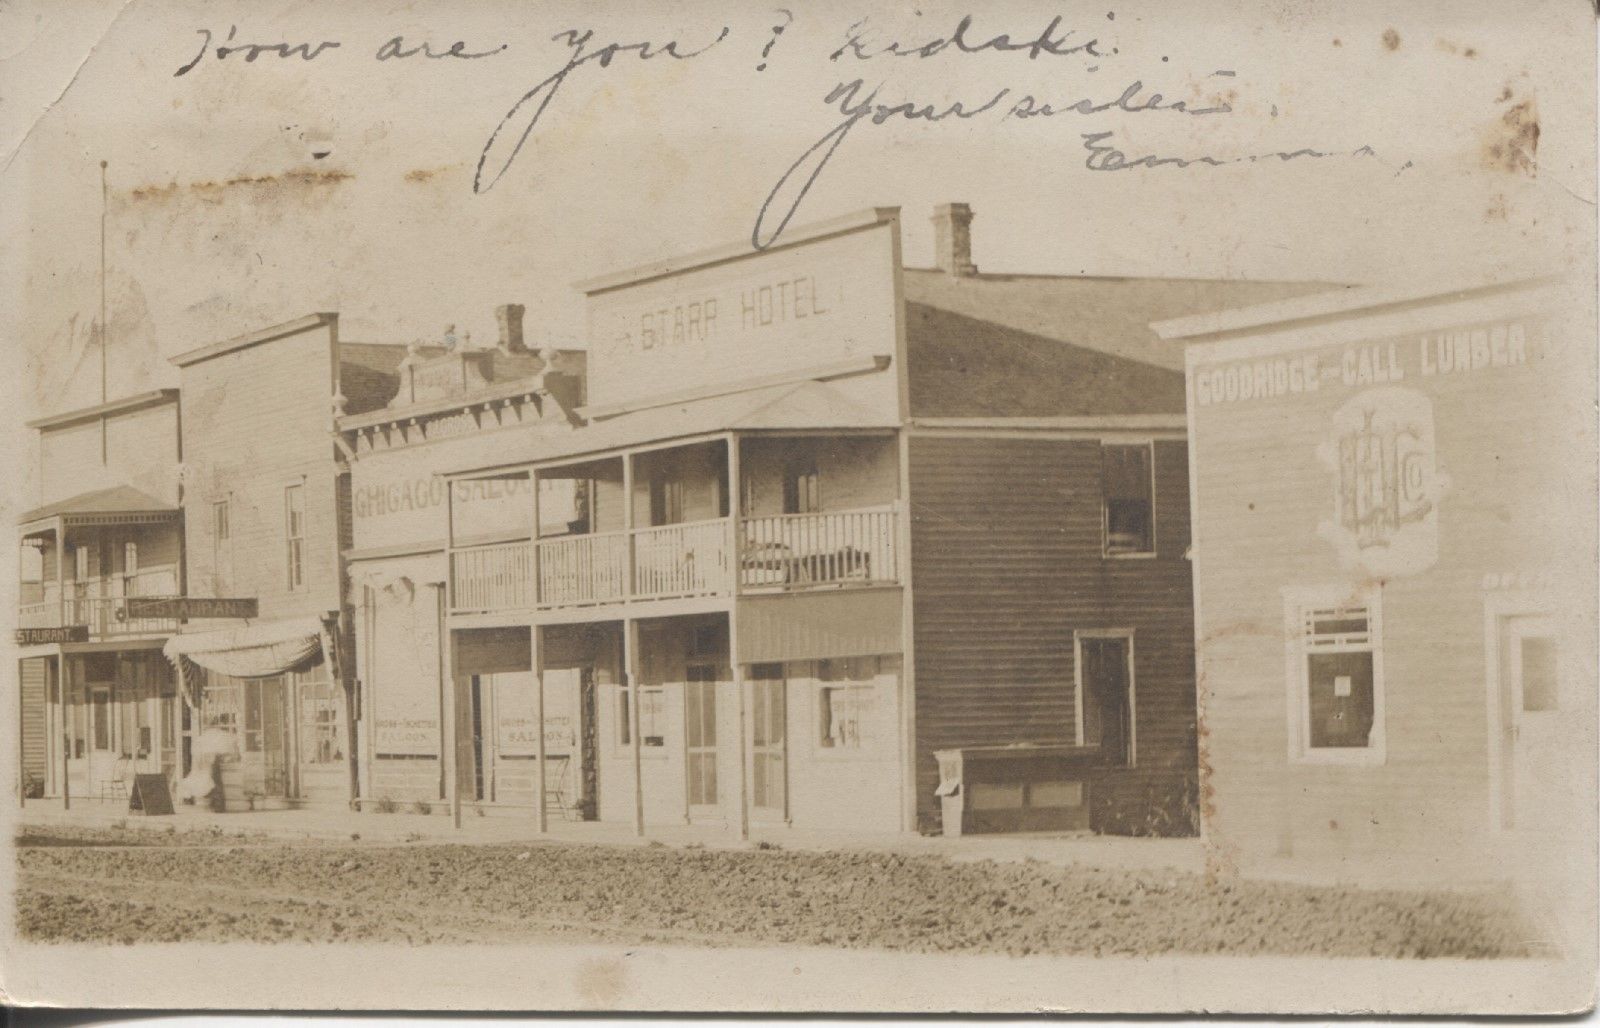 How are you? Kidski.
Your sister.
Emma.
STARR HOTEL
GOODRIDGE-CALL LUMBER
Co
CHICAGO SALOON
RESTAURANT
ESTAURANT.
SALOON.
SALOON